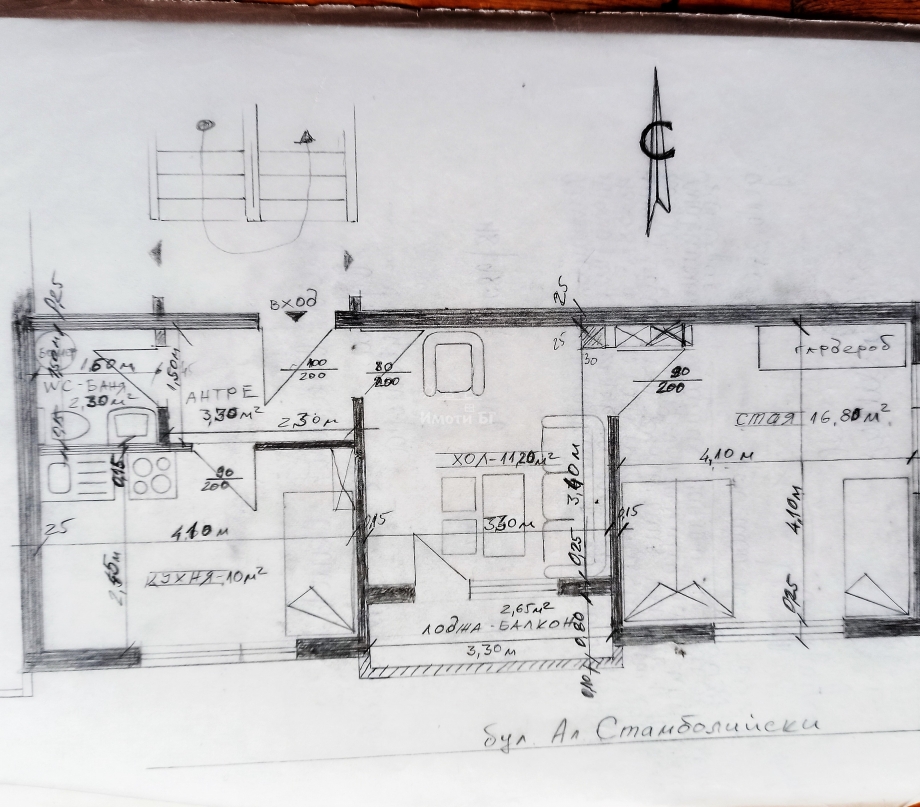 С
ВХОД
25
0,25
1,60 м
1,50 м
WC-БАНЯ
2,30 м²
АНТРЕ
3,30 м²
2,30 м
100
200
80
200
25
30
90
200
ГАРДЕРОБ
СТАЯ 16,80 м²
Имоти БГ
ХОЛ-11,20 м²
4,10 м
3,40 м
4,10 м
0,15
90
200
25
4,10 м
0,15
3,30 м
0,15
0,25
2,45 м
КУХНЯ-10 м²
0,25
2,65 м²
ЛОДЖА-БАЛКОН
0,80
3,30 м
0,10
бул. Ал Стамболийски